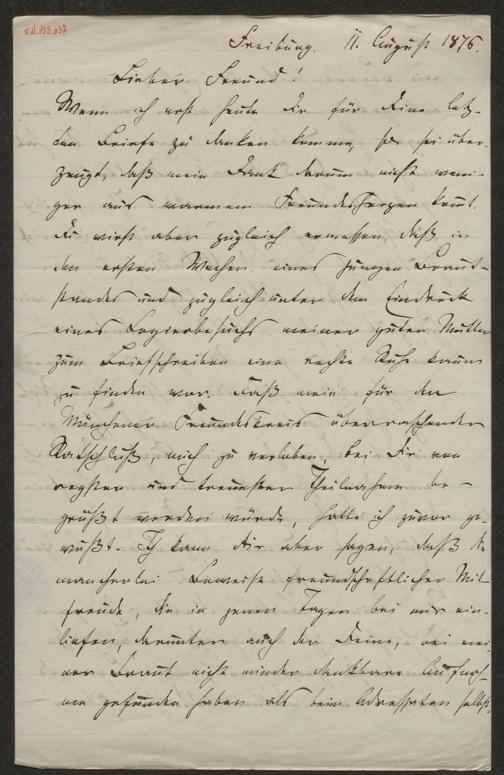 V.N. 133.037
Freiburg. 11. August 1876.
Lieber Freund!
Wenn ich erst heute Dir für Deine letz-
ten Briefe zu danken komme, so sei über-
zeugt, daß mein Dank darum nicht weni-
ger aus warmem Freundesherzen kommt.
Du wirst aber zugleich ermessen, daß in
den ersten Wochen eines jungen Braut-
standes und zugleich unter dem Eindruck
eines Logierbesuchs meiner guten Mutter
zum Briefschreiben eine rechte Ruhe kaum
zu finden war. Daß mein für den
Münchener Freundeskreis überraschender
Ratschluß, mich zu verloben, bei Dir von
regster und treuester Theilnahme be-
grüßt werden würde, hatte ich zuvor ge-
wußt. Ich kann Dir aber sagen, daß die
mancherlei Beweise freundschaftlicher Mit-
freude, die in jenen Tagen bei mir ein-
liefen, darunter auch der Deine, bei mei-
ner Braut nicht minder dankbare Aufnah-
me gefunden haben als beim Adressaten selbst.